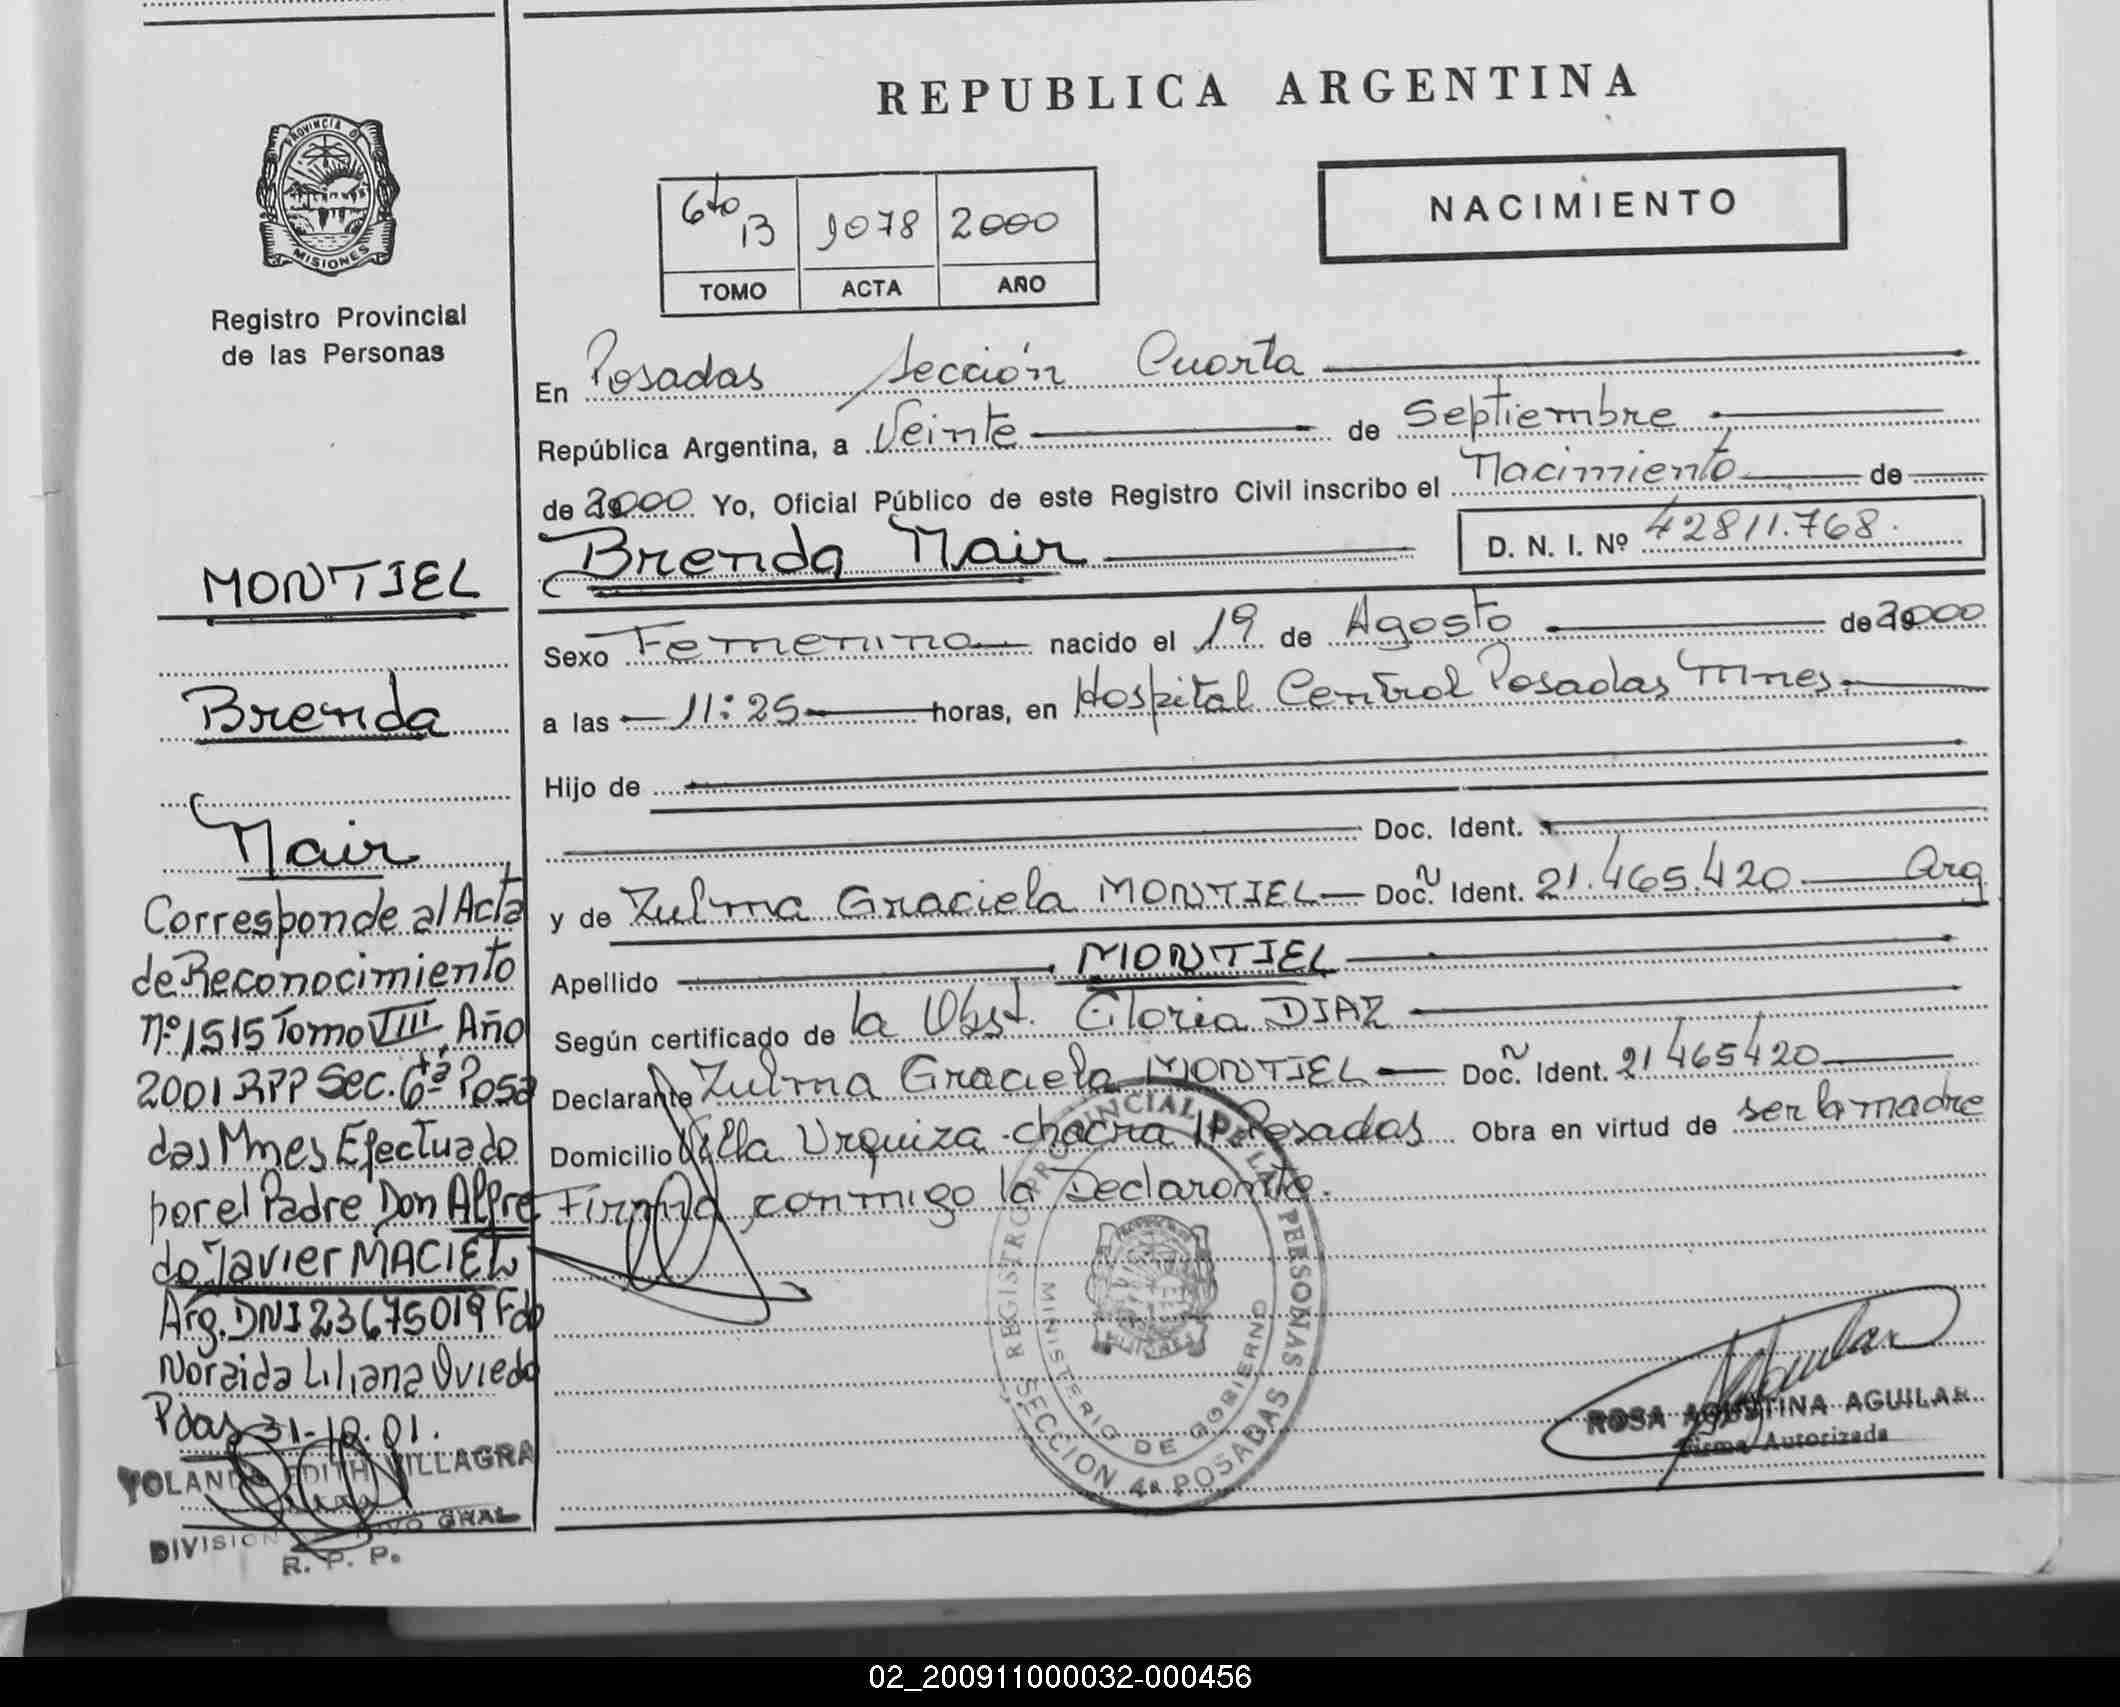 REPUBLICA ARGENTINA
PROVINCIA D
MISIONES
Registro Provincial
de las Personas
6to B 1078 2000
TOMO ACTA AÑO
NACIMIENTO
En Posadas Sección Cuarta
República Argentina, a Veinte de Septiembre
de 2000 Yo, Oficial Público de este Registro Civil inscribo el Nacimiento de
Brenda Nair D. N. I. Nº 42811.768.
Sexo Femenino nacido el 19 de Agosto de 2000
a las 11:25 horas, en Hospital Central Posadas Mnes.
Hijo de
Doc. Ident.
y de Zulma Graciela MONTIEL Doc. Ident. 21.465.420 Arg
Apellido MONTIEL
Según certificado de la Obst. Gloria DIAZ
Declarante Zulma Graciela MONTIEL Doc. Ident. 21 465420
Domicilio Villa Urquiza chacra 11 Posadas Obra en virtud de ser la madre
Firma conmigo la Declarante.
MONTIEL
Brenda
Nair
Corresponde al Acta
de Reconocimiento
Nº 1515 Tomo VIII Año
2001 RPP Sec. 6ta Posa
das Mnes Efectuado
por el Padre Don Alfre
do Javier MACIEL
Arg. DNI 23675019 Fdo
Noraida Liliana Oviedo
Pdas 31-10.01.
YOLANDA EDITH VILLAGRA
DIVISION GRAL
R. P. P.
REGISTRO PROVINCIAL DE LAS PERSONAS
MINISTERIO DE GOBIERNO
SECCION 4a POSADAS
ROSA AGUSTINA AGUILAR
Firma Autorizada
02_200911000032-000456